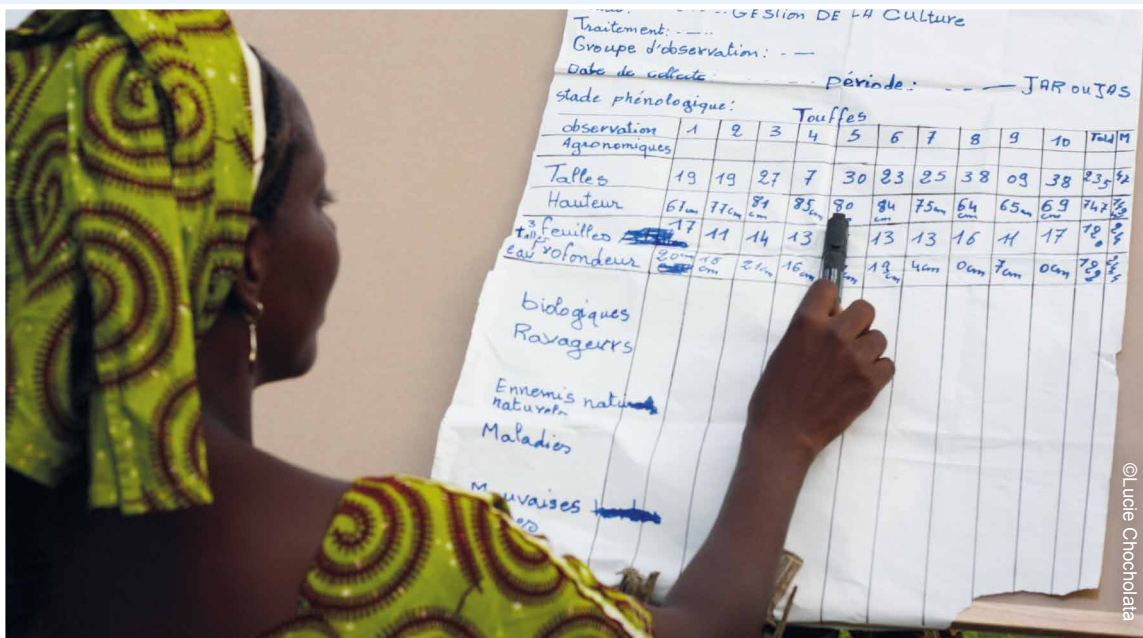 GESTION DE LA CULTURE
Traitement: - — -
Groupe d'observation: - —
Date de collecte: période: - - — JAR ou JAS
stade phénologique: Touffes
observation Agronomiques 1 2 3 4 5 6 7 8 9 10 Total M
Talles 19 19 27 7 30 23 25 38 09 38 235
Hauteur 67cm 77cm 81cm 85cm 80 84cm 75cm 64cm 65cm 69cm 747
feuilles 17 11 14 13 13 13 16 11 17
eau Profondeur 20cm 21cm 16cm 4cm 0cm 7cm 0cm
biologiques
Ravageurs
Ennemis
naturels
Maladies
Mauvaises
©Lucie Chocholata